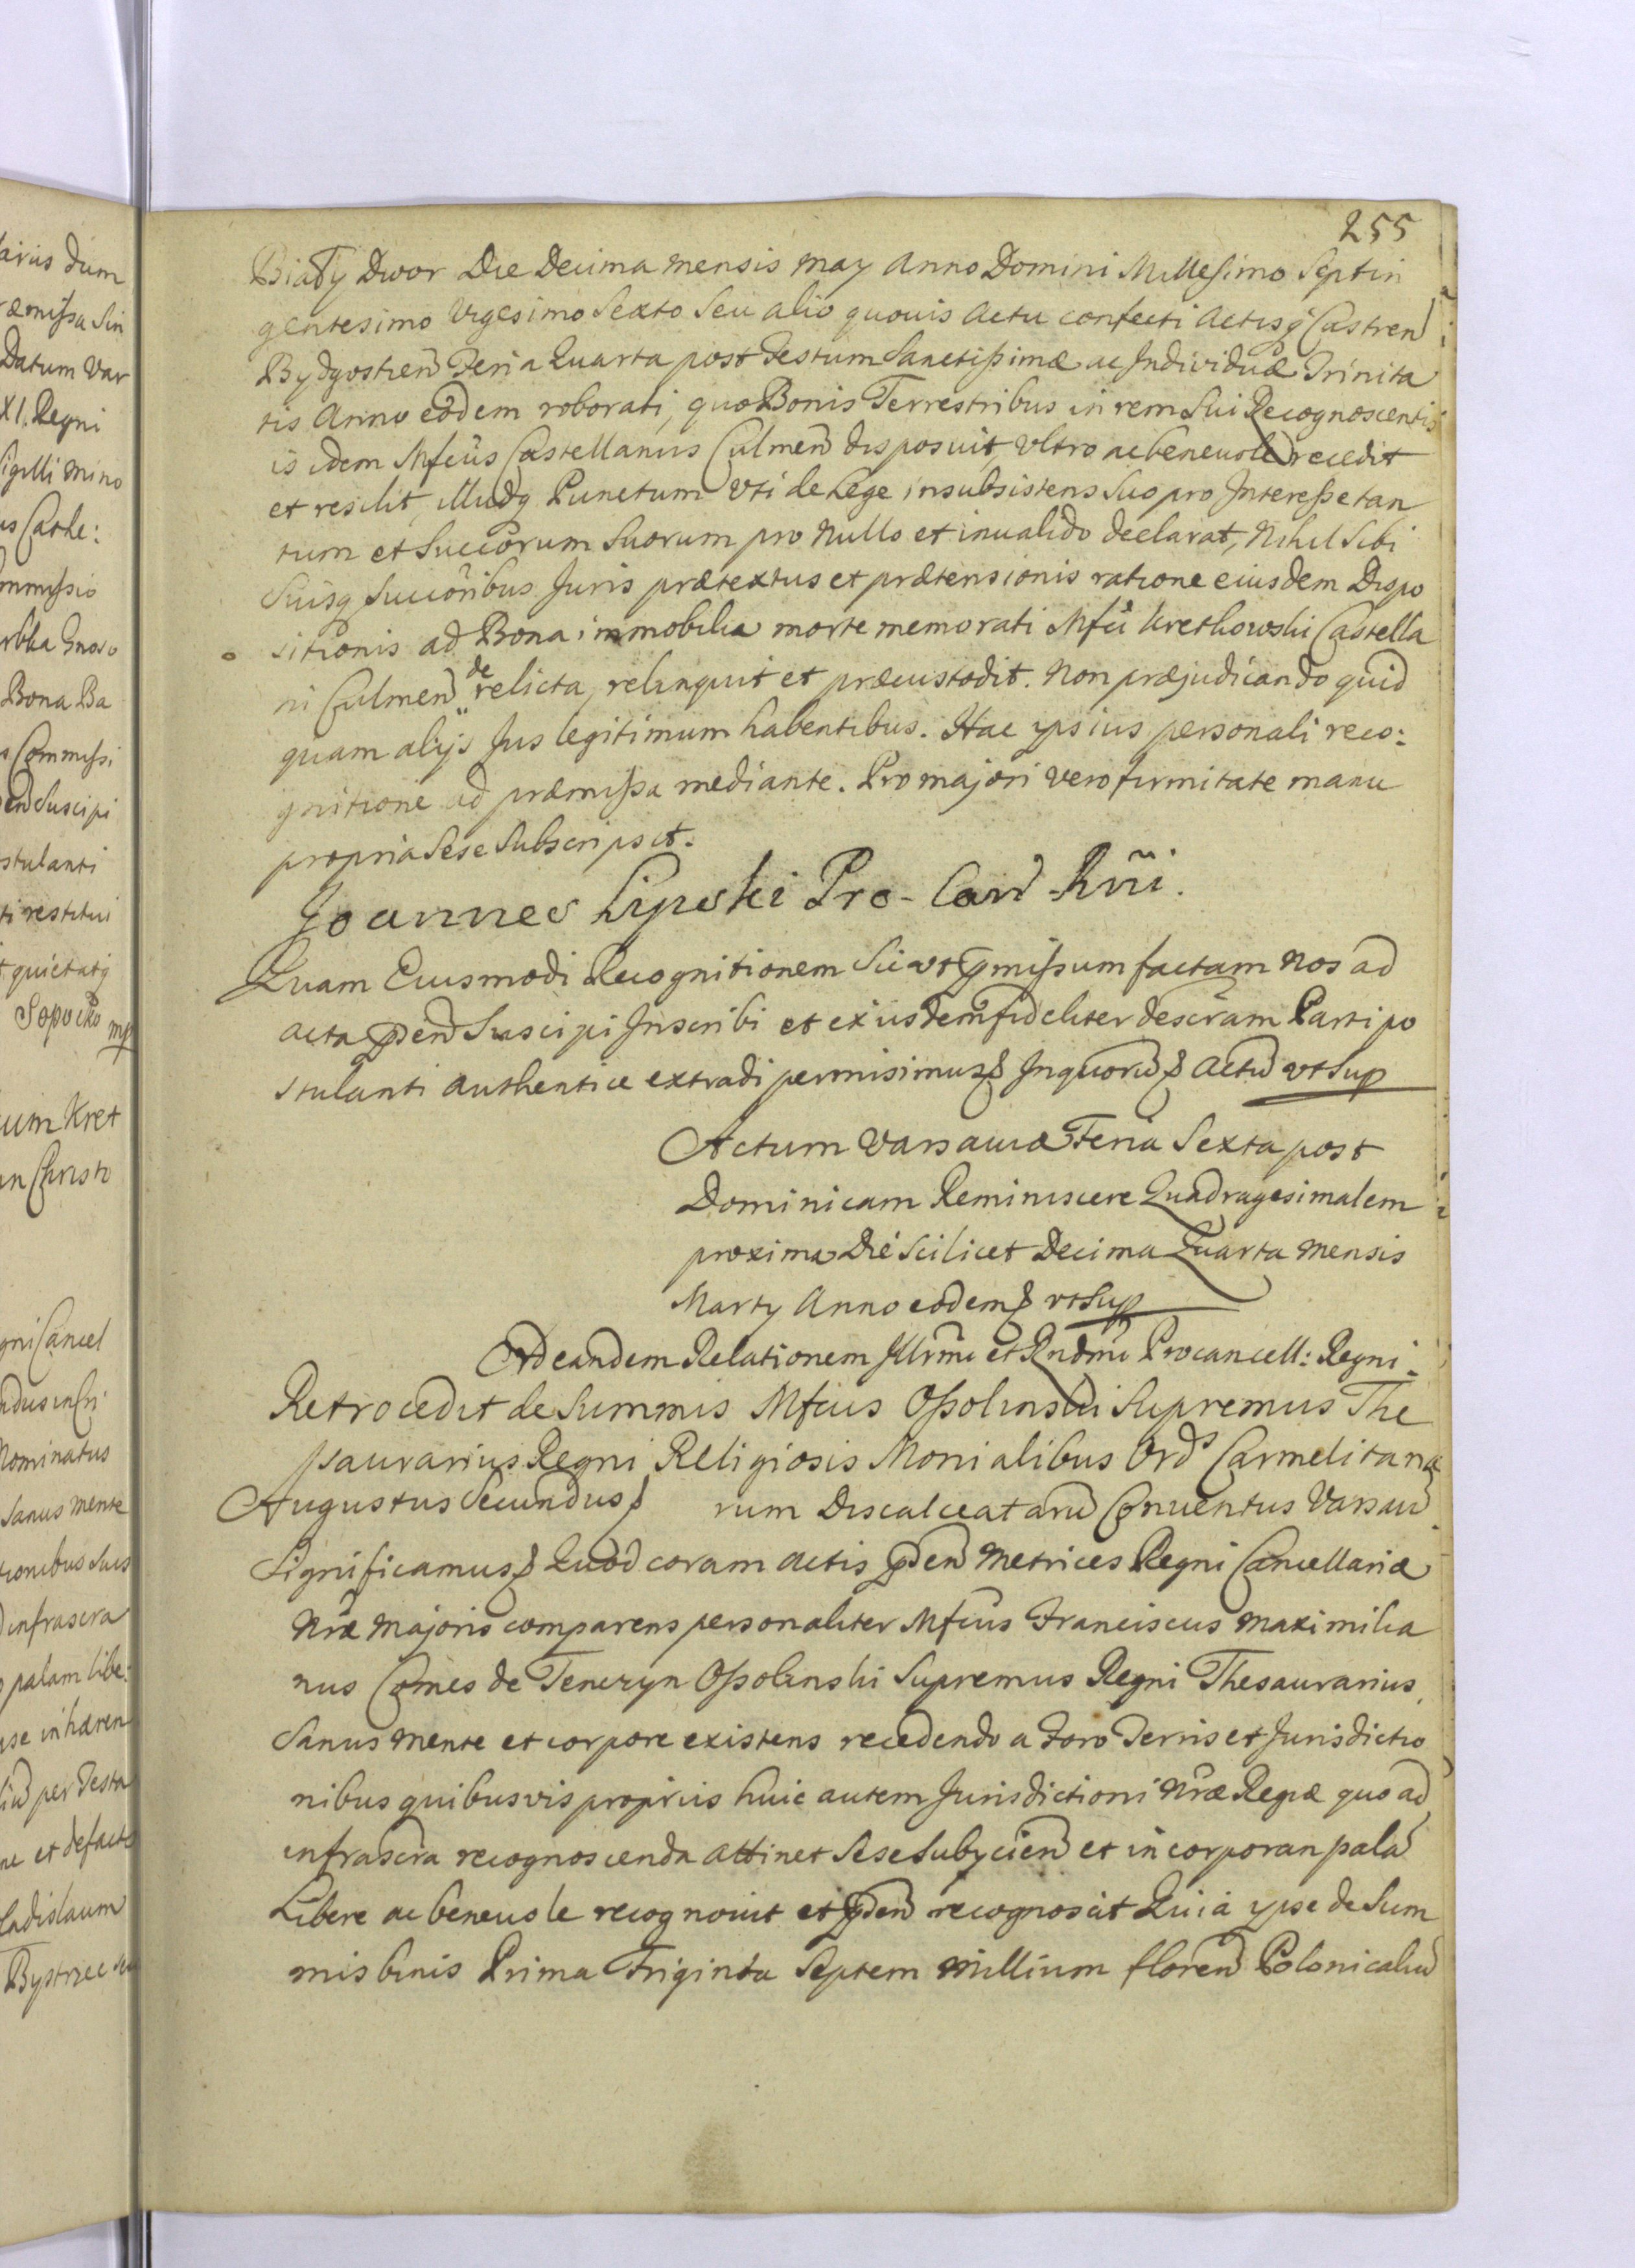 255
Biały Dwor Die Decima mensis May Anno Domini Millesimo Septin
gentesimo Vigesimo Sexto Seu alio quouis Actu confecti Actisq́ Castren
Bydgostien Feria Quarta post Festum Sanctissimæ ac Individuæ Trinita
tis Anno eodem roborati, quo Bonis Terrestribus in rem Sui Recognoscentis
is idem Mfcus Castellanus Culmen disposuit, Vltro ac beneuole recedit
et resilit, illudq Punctum Vti de Lege insubsistens Suo pro Interesse tan
tum et Succorum Suorum pro Nullo et inualido declarat, Nihil Sibi
Suisq Succoribus Juris prætextus et prætensionis ratione eiusdem Dispo
sitionis ad Bona immobilia morte memorati Mfci Kretkowski Castella
ni Culmen derelicta, relinquit et præcustodit. Non præjudicando quid
quam alijs Jus legitimum habentibus. Hac ipsius personali reco:
gnitione ad præmissa mediante. Pro majori vero firmitate manu
propria Sese Subscripsit.
Joannes Lipski Pro-Can Rñi.
Quam Eiusmodi Recognitionem Sic vt pmissum factam Nos ad
acta pden Suscipi Inscribi et ex iisdem fideliter descram Parti po
stulanti authentice extradi permisimus In quoru Actu vt Sup
Actum Varsauiæ Feria Sexta post
Dominicam Reminiscere Quadragesimalem
proxima Die Scilicet Decima Quarta Mensis
Marty Anno eodem vt Sup
Ad eandem Relationem Illrmi et Rndmi Procancell: Regni
Retrocedit de Summis Mfcus Ossolinski Supremus The
saurarius Regni Religiosis Monialibus Ord Carmelitana
Augustus Secundus rum Discalceataru Conuentus Varsau
Significamus Quod coram actis pden Metrices Regni Cancellariæ
Nræ Majoris comparens personaliter Mfcus Franciscus Maximilia
nus Comes de Tenczyn Ossolinski Supremus Regni Thesaurarius
Sanus Mente et corpore existens recedendo a Foro Terris et Jurisdictio
nibus quibusvis propriis huic autem Jurisdictioni Nræ Regiæ quo ad
infrascra recognoscenda attinet Sese Subycien et incorporan pala
Libere ac beneuole recognouit et pden recognoscit Quia ipse de Sum
mis binis Prima Triginta Septem Millium floren Polonicaliu